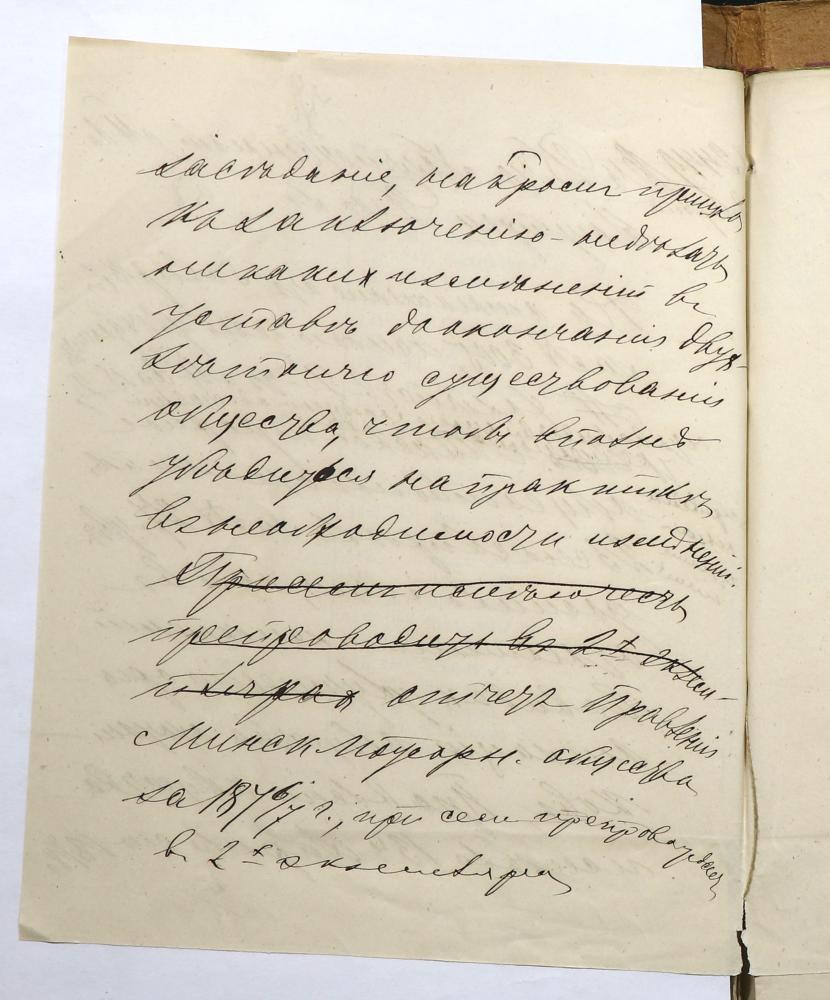 засѣданіе, на кросил пришла
къ заключенію – недѣлать
никакихъ измѣненій въ
уставѣ доокончанія двух-
лѣтняго существованія
общества, чтобы вполнѣ
убѣдиться напрактикѣ
въ необходимости измѣненій.
При семъ имѣю честь
препроводить въ 2х экзем-
плярахъ отчетъ Правленія
Минск. Мѣстн. общества
за 1876/7 г., при семъ препровождает
въ 2х экземплярах